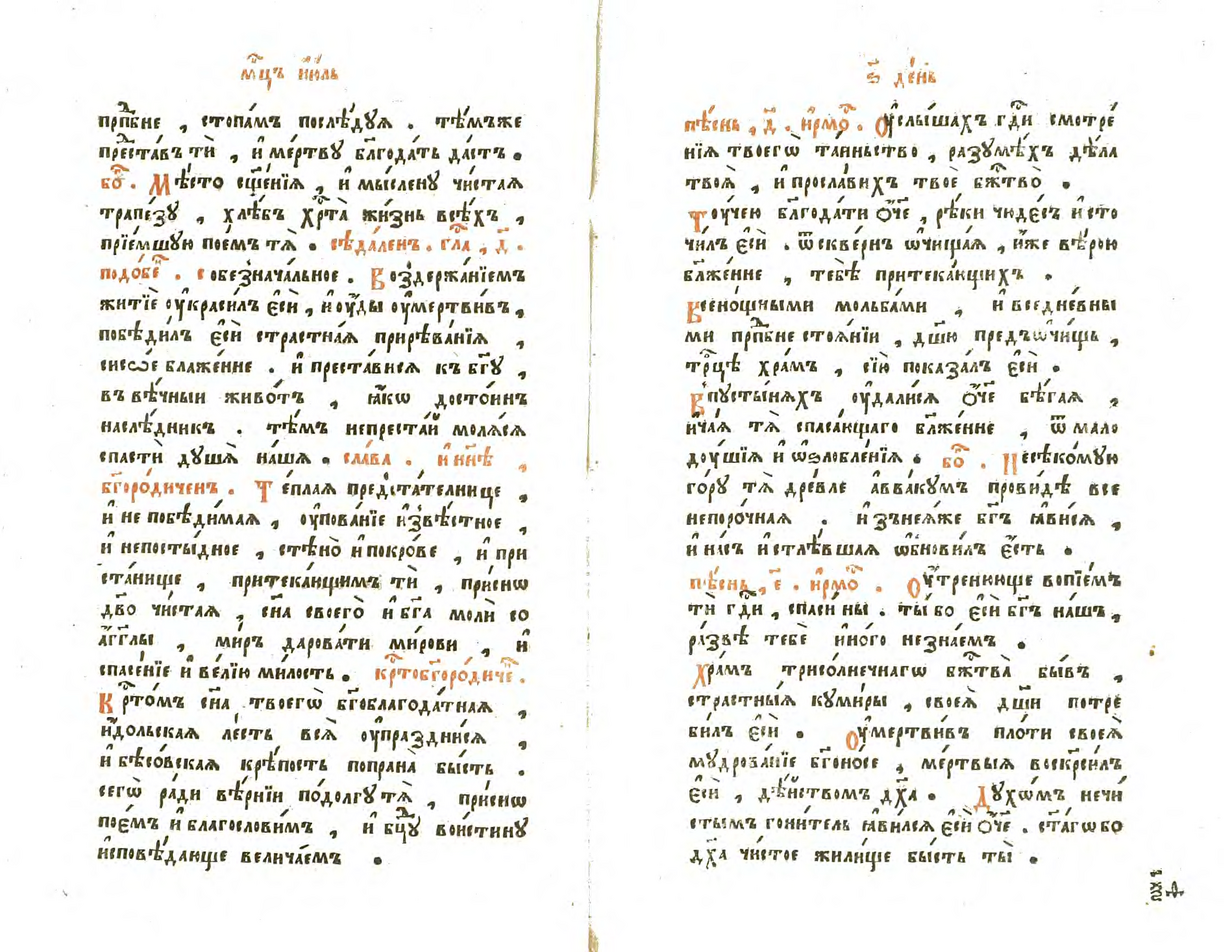 мц҃ъ і҆ю́ль
прпⷣбне , стопа́мъ послѣ́дꙋѧ . тѣ́мъже
преста́въ тѝ , и҆ ме́ртвꙋ бл҃года́ть да́стъ .
бо҃ . Мѣ́сто сщ҃е́нїѧ , и҆ мы́сленꙋ чи́стаѧ
трапе́зꙋ , хлѣ́бъ хрⷭ҇та̀ жи́знь всѣ́хъ ,
прїе́мшꙋю пое́мъ тѧ̀ . сѣда́ленъ . гла , д҃ .
подо́бе . собезнача́льное . Воздержа́нїемъ
житїѐ ᲂу҆краси́лъ є҆сѝ , и҆ ᲂу҆́ды ᲂу҆мертви́въ ,
побѣди́лъ є҆сѝ стра́стнаѧ прирѣва́нїѧ ,
сисѡ́е блаже́нне . и҆ преста́висѧ къ бг҃ꙋ ,
въ вѣ́чныи живо́тъ , ꙗ҆́кѡ досто́инъ
наслѣ́дникъ . тѣ́мъ непреста́й молѧ́сѧ
спастѝ дꙋ́шѧ на́шѧ . сла́ва . и҆ нн҃ѣ ,
бг҃оро́диченъ . Те́плаѧ предста́телнице ,
и҆ не побѣди́маѧ , ᲂу҆пова́нїе и҆звѣ́стное ,
и҆ непосты́дное , стѣно̀ и҆ покро́ве , и҆ при
ста́нище , притека́ющимъ тѝ , при́снѡ
дв҃о чи́стаѧ , сн҃а своего̀ и҆ бг҃а молѝ со
а҆́гг҃лы , ми́ръ дарова́ти ми́рови , и҆
спасе́нїе и҆ ве́лїю ми́лость . крⷭ҇тобг҃оро́диче .
Крⷭ҇то́мъ сн҃а твоегѡ̀ бг҃облагода́тнаѧ ,
и҆́дольскаѧ ле́сть всѧ̀ ᲂу҆праздни́сѧ ,
и҆ бѣсо́вскаѧ крѣ́пость попрана̀ бы́сть .
сегѡ̀ ра́ди вѣ́рнїи по́долгꙋ тѧ̀ , при́снѡ
пое́мъ и҆ благослови́мъ , и҆ бцⷣꙋ вои́стинꙋ
и҆сповѣ́дающе велича́емъ .
ѕ҃ де́нь
пѣ́снь , д҃ . и҆рмо́ . Оу҆слы́шахъ гдⷭ҇и смотре́
нїѧ твоегѡ̀ та́иньство , разꙋмѣ́хъ дѣла̀
твоѧ̀ , и҆ просла́вихъ твоѐ бжⷭ҇тво̀ .
Тоу́чею бл҃года́ти ѻ҆́ч҃е , рѣ́ки чюде́съ и҆сто
чи́лъ є҆сѝ . ѿ скве́рнъ ѡ҆чища́ѧ , и҆́же вѣ́рою
бл҃же́нне , тебѣ̀ притека́ющихъ .
Всено́щными мольба́ми , и҆ вседне́вны
ми прпⷣбне стоѧ́нїи , дш҃ю предъѡчи́щь ,
трⷪ҇цѣ хра́мъ , сїю̀ показа́лъ є҆сѝ .
Впꙋсты́нѧхъ ᲂу҆дали́сѧ ѻ҆́ч҃е бѣ́гаѧ ,
и҆ ча́ѧ тѧ̀ спаса́ющаго бл҃же́нне , ѿ мало
доу́шїѧ и҆ ѡ҆ѕлобле́нїѧ . бо҃ . Несѣко́мꙋю
го́рꙋ тѧ̀ дре́вле а҆ввакꙋ́мъ прови́дѣ все
непоро́чнаѧ . и҆ зънеѧ́же бг҃ъ ꙗ҆ви́сѧ ,
и҆ на́съ и҆стлѣ́вшаѧ ѡ҆бнови́лъ є҆́сть .
пѣ́снь , є҃ . и҆рмо́ . Оу҆́тренююще вопїе́мъ
тѝ гдⷭ҇и , спаси́ ны . ты́ бо є҆сѝ бг҃ъ на́шъ ,
ра́звѣ тебѐ и҆но́го незна́емъ .
Хра́мъ трисо́лнечнагѡ бжⷭ҇тва̀ бы́въ ,
стра́стныѧ кꙋми́ры , своеѧ̀ дш҃и потре
би́лъ є҆сѝ . Оу҆мертви́въ пло́ти своеѧ̀
мꙋдрова́нїе бг҃оно́се , ме́ртвыѧ воскреси́лъ
є҆сѝ , дѣ́йством дх҃а . Дꙋхѡ́мъ нечи́
стымъ гони́тель ꙗ҆ви́лсѧ є҆сѝ ѻ҆́ч҃е . ст҃а́гѡ бо
дх҃а чи́стое жили́ще бы́сть ты̀ .